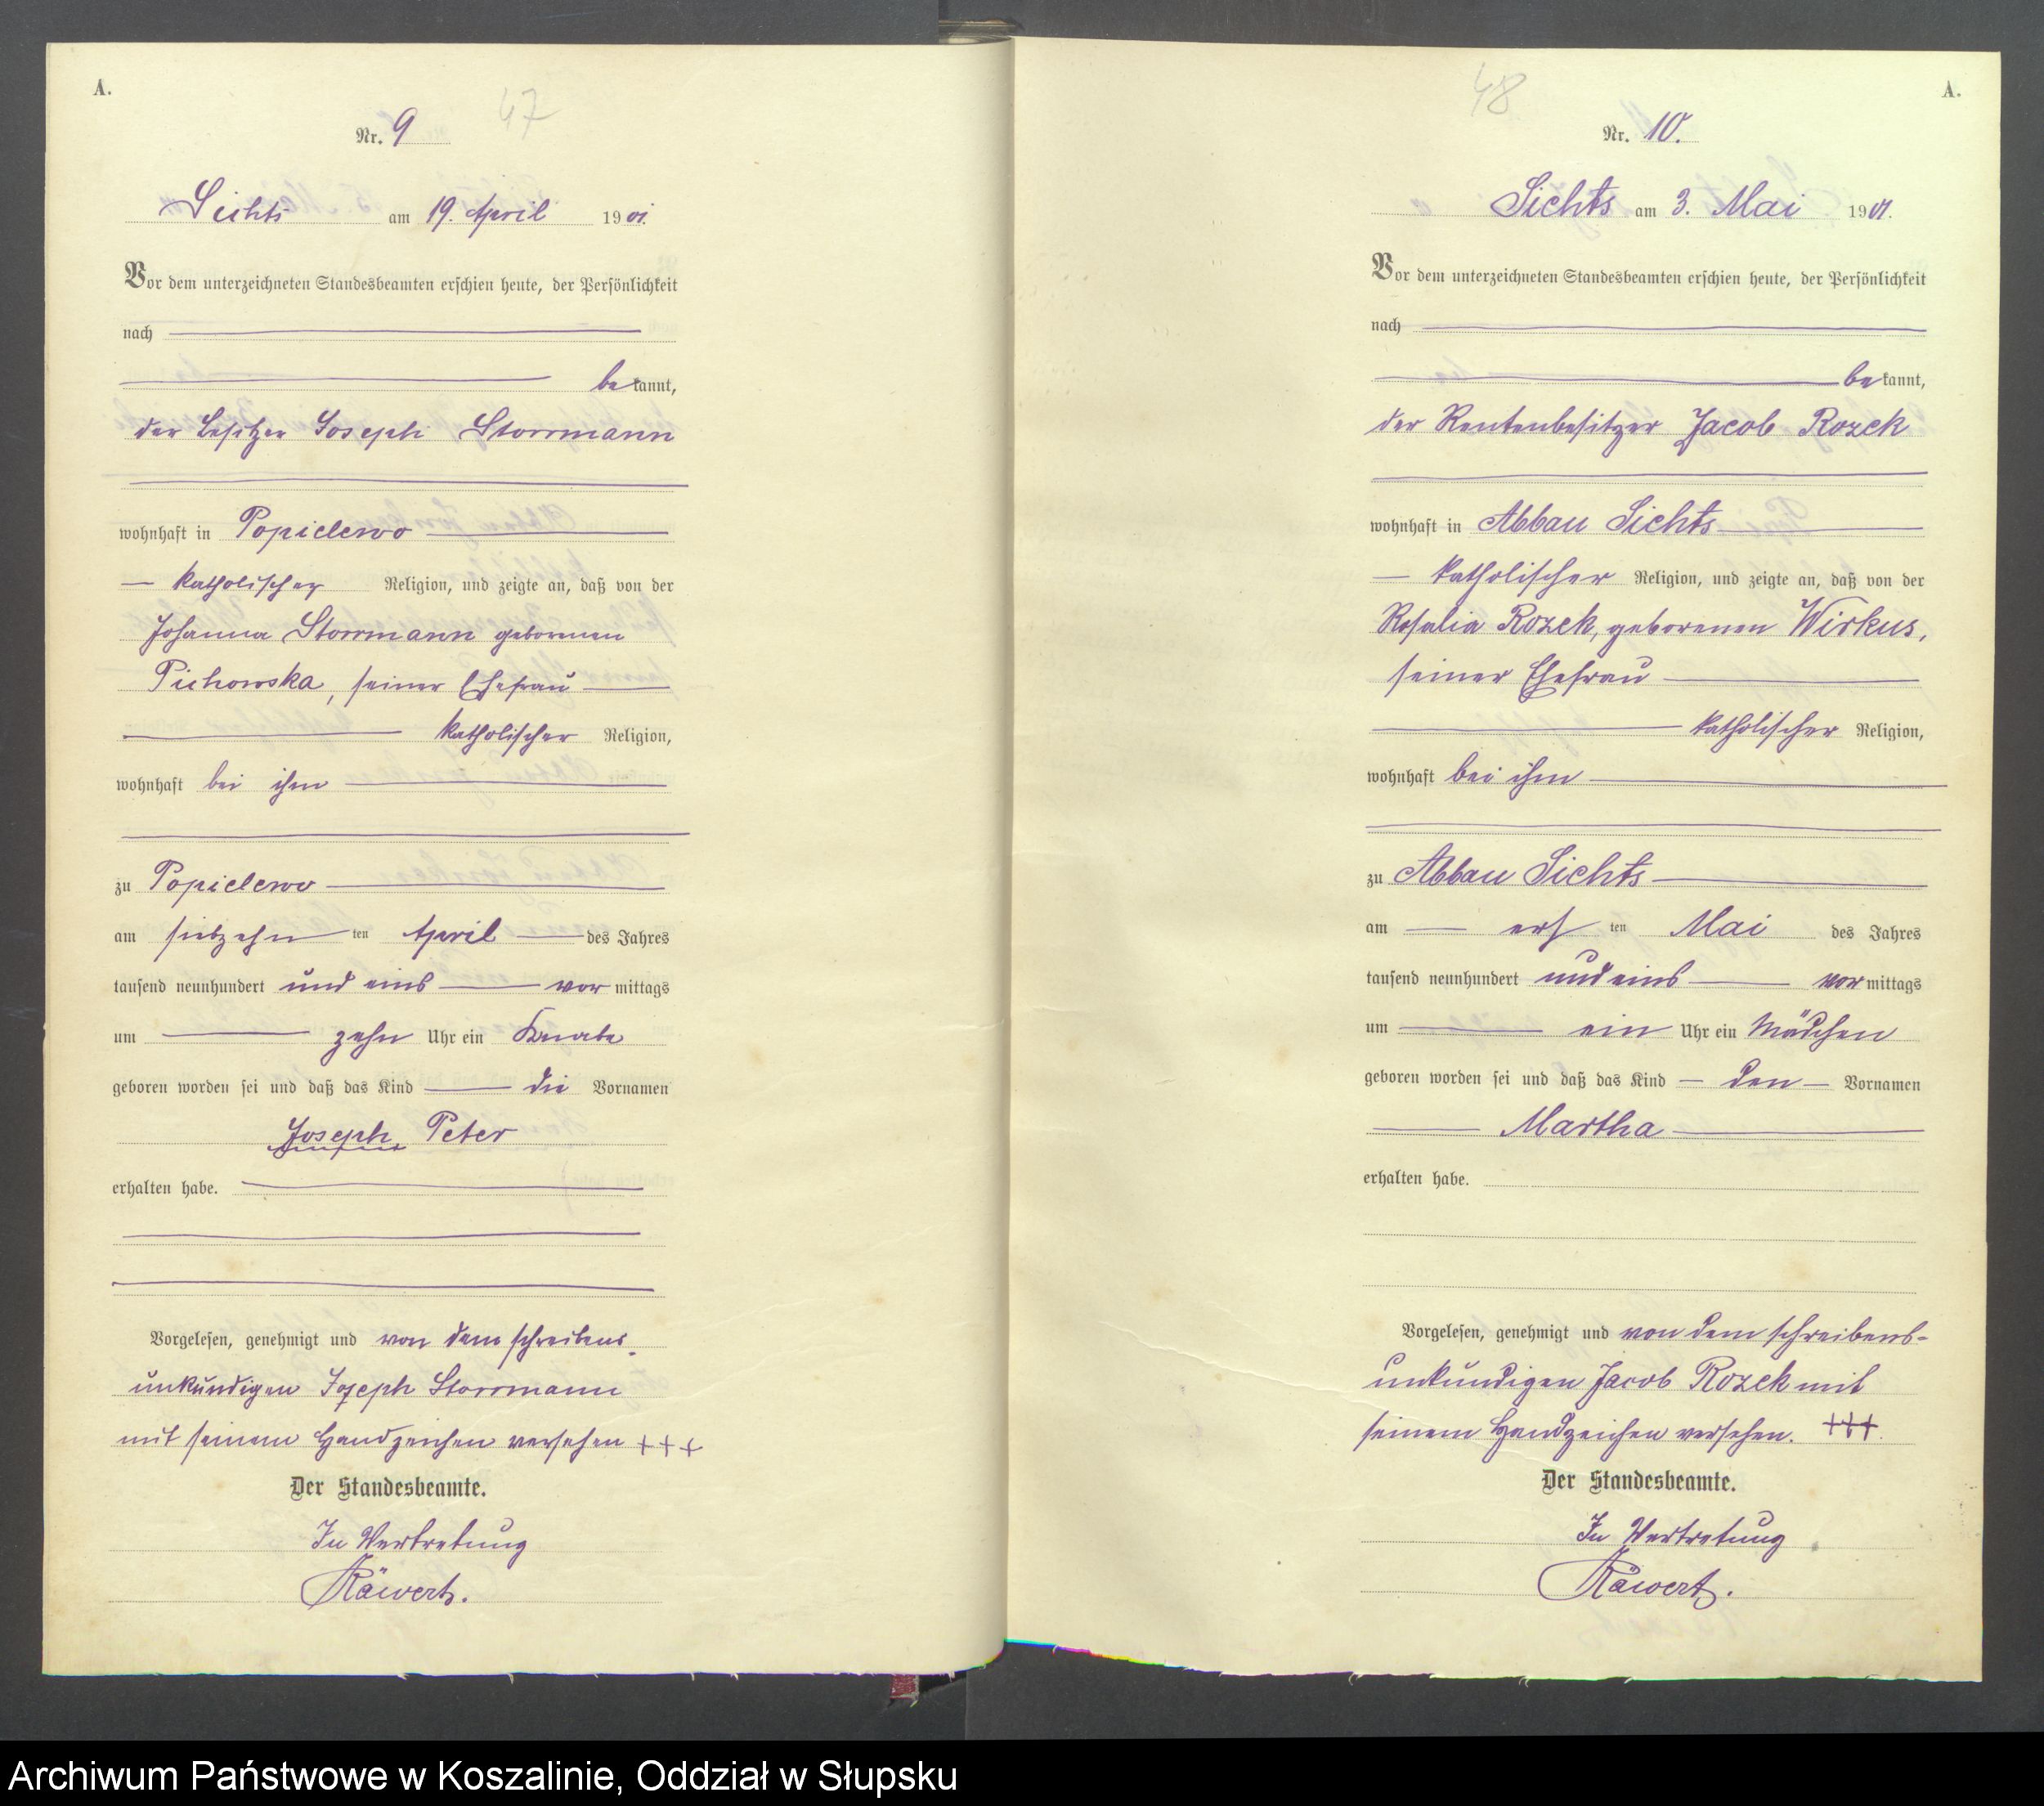 A.
47
Nr. 9
Sichts am 19. April 1901.
Vor dem unterzeichneten Standesbeamten erschien heute, der Persönlichkeit
nach
bekannt,
der Besitzer Joseph Storrmann
wohnhaft in Popielewo
katholischer Religion, und zeigte an, daß von der
Johanna Storrmann geborenen
Pichowska, seiner Ehefrau
katholischer Religion,
wohnhaft bei ihm
zu Popielewo
am siebzehn ten April des Jahres
tausend neunhundert und eins vor mittags
um zehn Uhr ein Knabe
geboren worden sei und daß das Kind die Vornamen
Joseph Peter
erhalten habe.
Vorgelesen, genehmigt und von dem schreibens-
unkundigen Joseph Storrmann
mit seinem Handzeichen versehen +++
Der Standesbeamte.
In Vertretung
Räwert.
48
A.
Nr. 10.
Sichts am 3. Mai 1901.
Vor dem unterzeichneten Standesbeamten erschien heute, der Persönlichkeit
nach
bekannt,
der Rentenbesitzer Jacob Rozek
wohnhaft in Abbau Sichts
katholischer Religion, und zeigte an, daß von der
Rosalia Rozek, geborenen Wirkus,
seiner Ehefrau
katholischer Religion,
wohnhaft bei ihm
zu Abbau Sichts
am ers ten Mai des Jahres
tausend neunhundert und eins vor mittags
um ein Uhr ein Mädchen
geboren worden sei und daß das Kind den Vornamen
Martha
erhalten habe.
Vorgelesen, genehmigt und von dem schreibens-
unkundigen Jacob Rozek mit
seinem Handzeichen versehen. +++.
Der Standesbeamte.
In Vertretung
Räwert.
Archiwum Państwowe w Koszalinie, Oddział w Słupsku